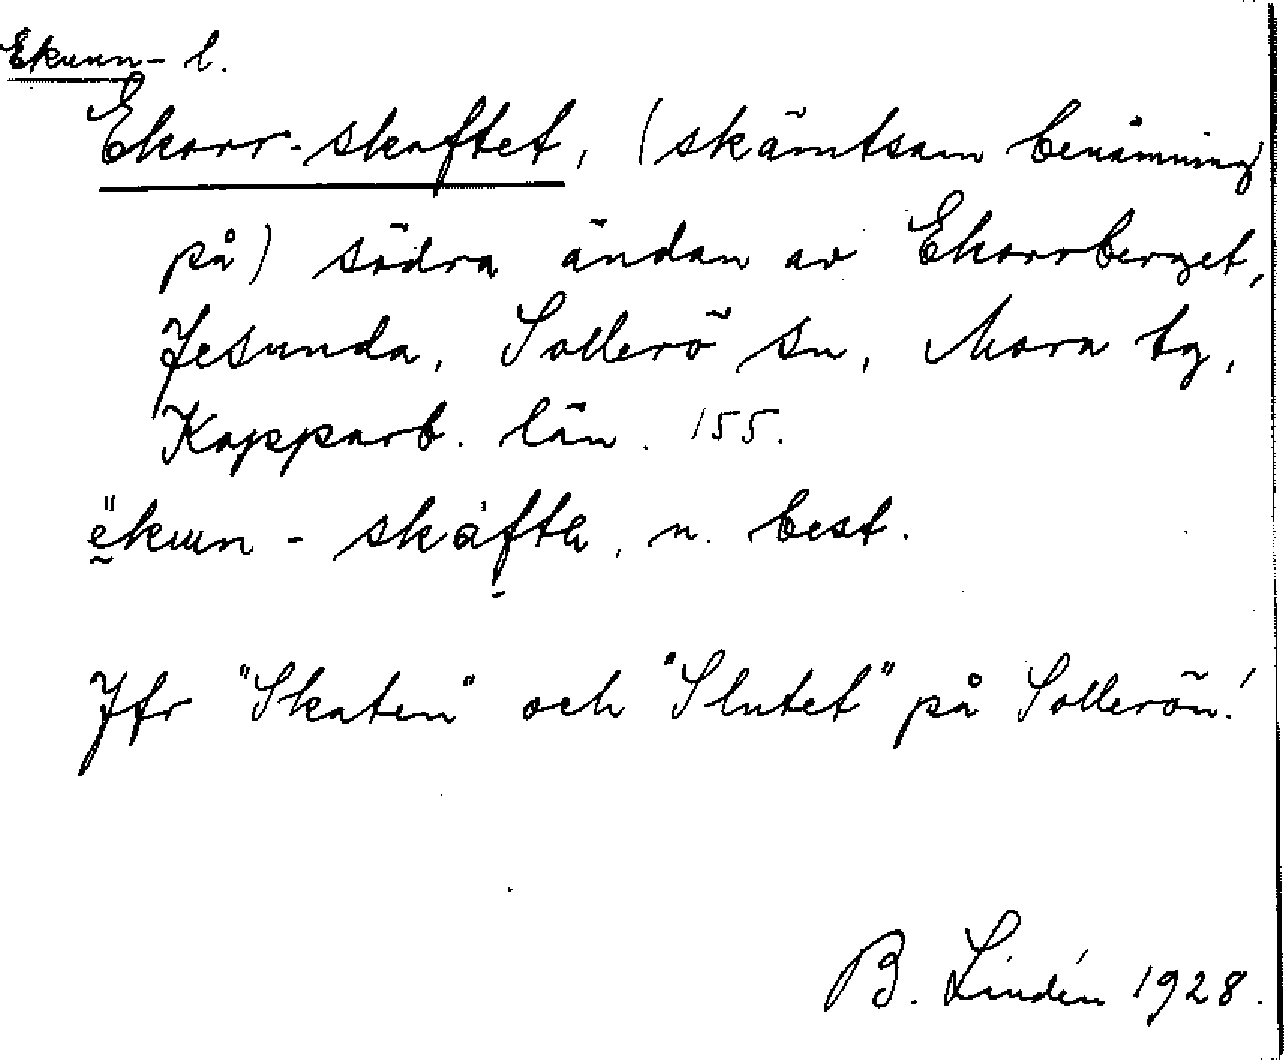 Ekunn- l.
Ekorr-skaftet, (skämtsam benämning
på) södra ändan av Ekorrberget,
Jesunda, Sollerö sn, Mora tg,
Kopparb. län. 155.
n. best.
Jfr "Skaten" och "Slutet" på Sollerön!
B. Lindén 1928.